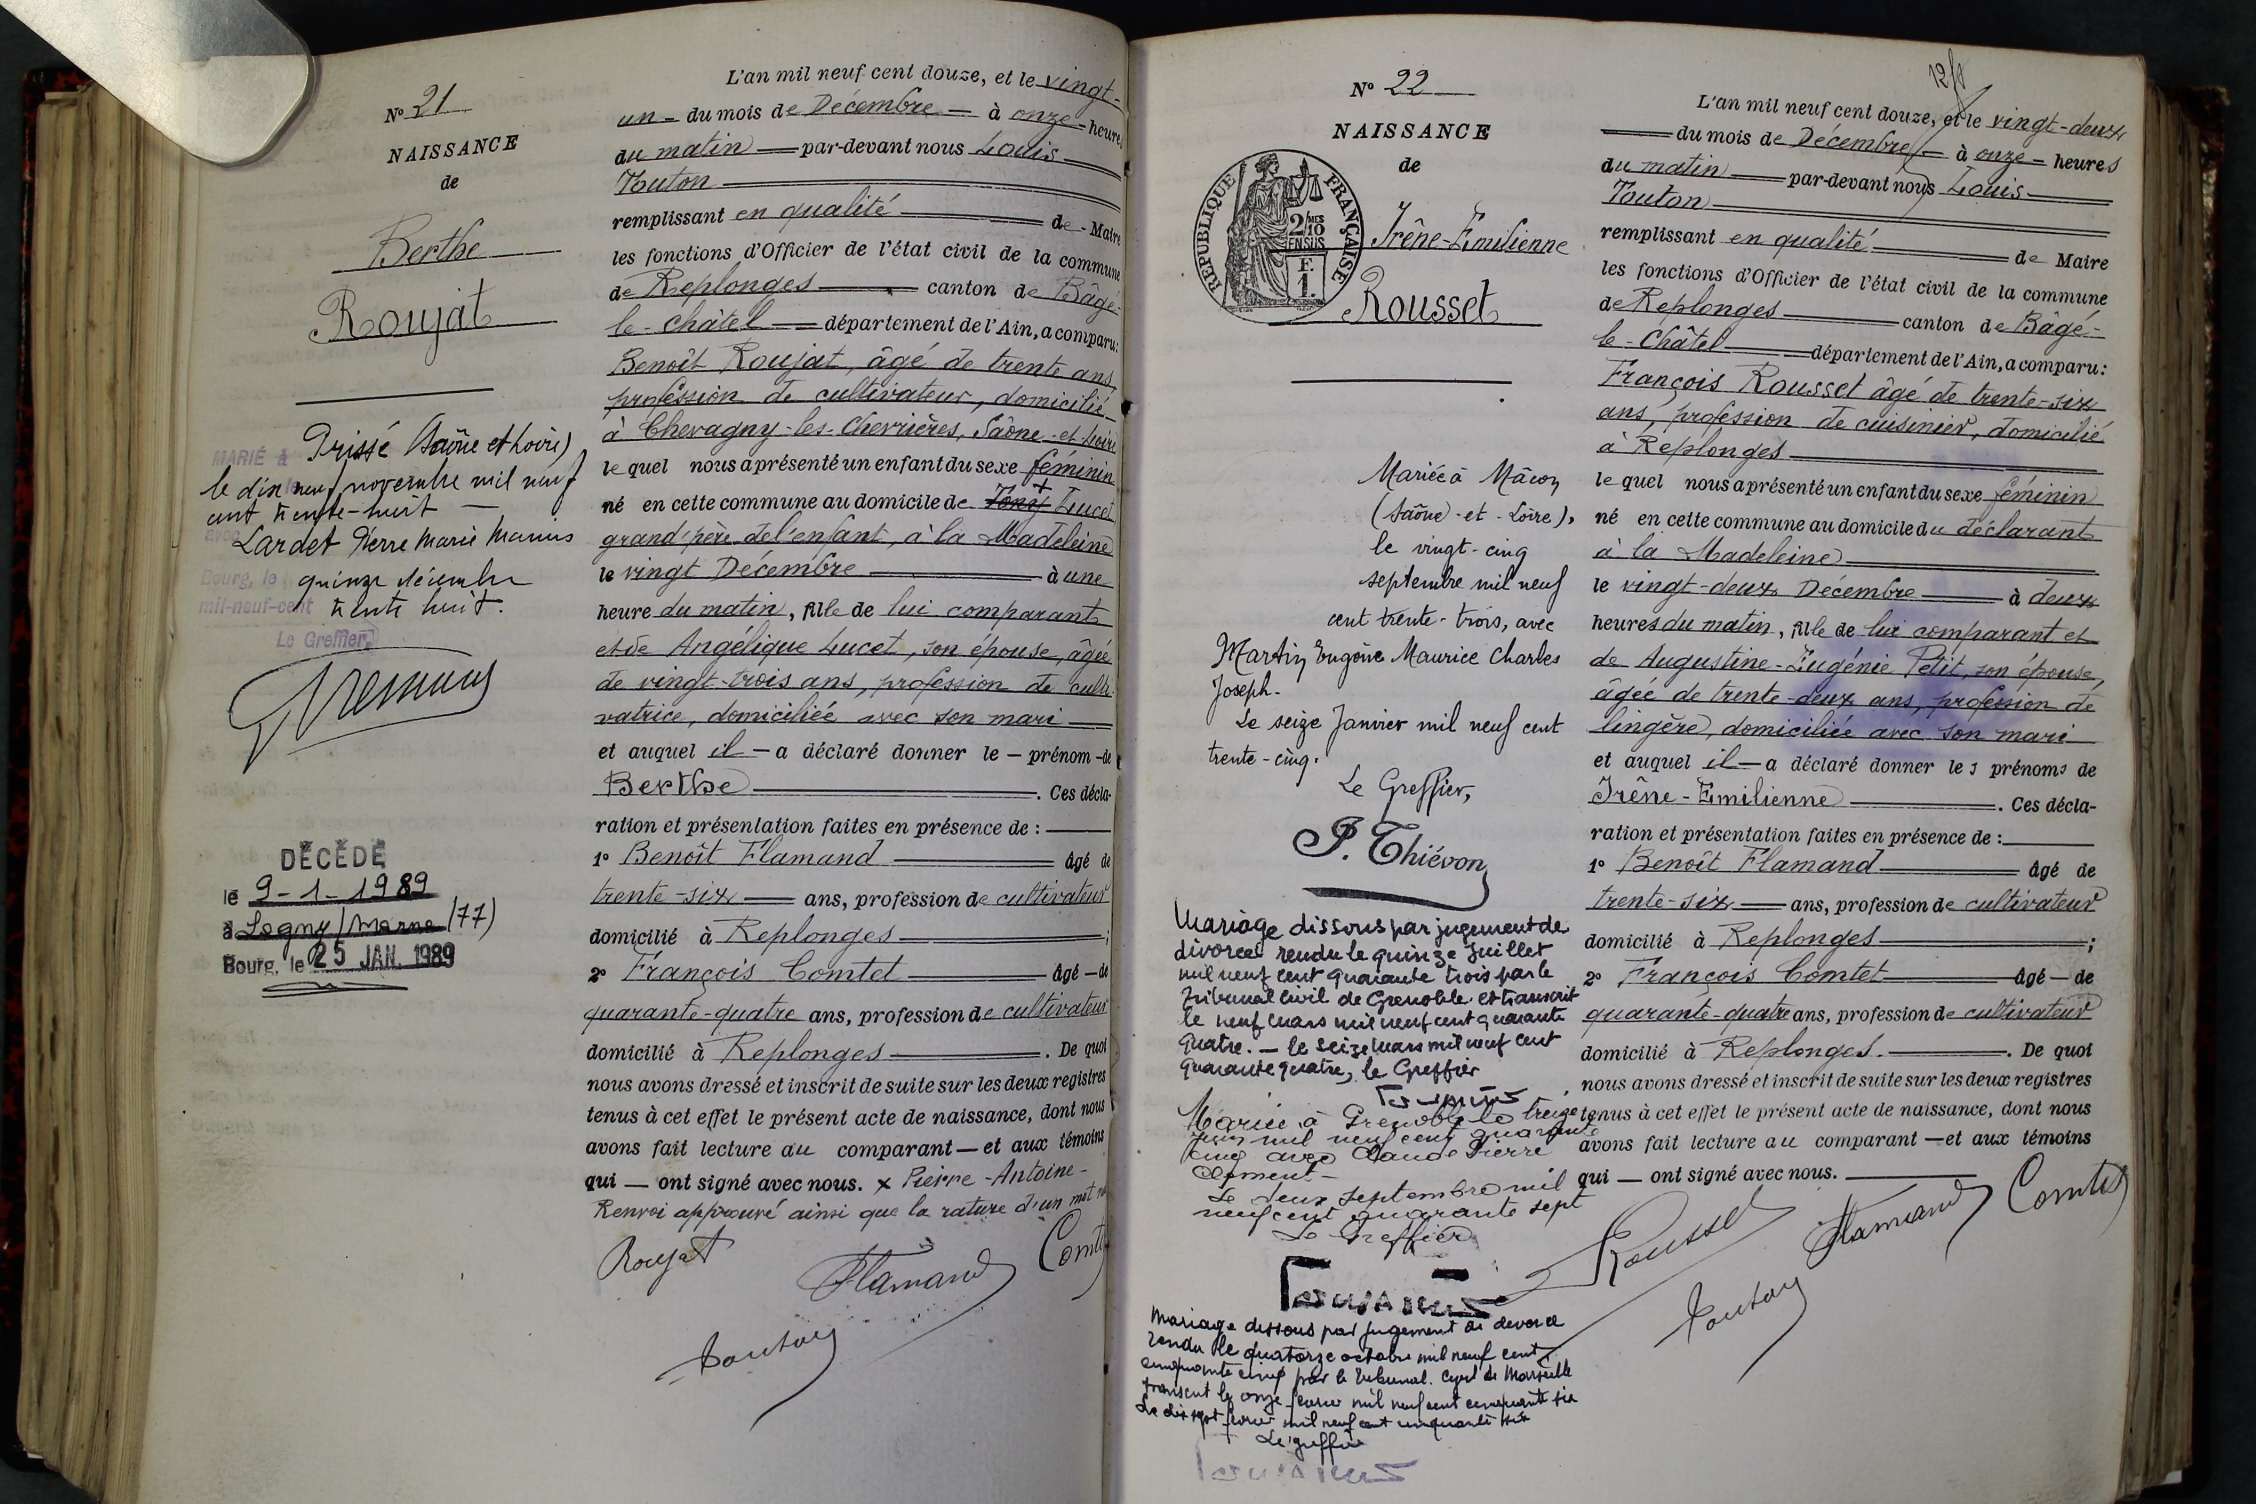 N° 21
NAISSANCE
de
Berthe
Roujat
MARIÉ à Prissé (Saône et Loire)
le dix neuf novembre mil neuf
cent trente-huit
avec
Lardet Pierre Marie Marius
Bourg, le quinze décembre
mil-neuf-cent trente huit.
Le Greffier,
DÉCÉDÉ
le 9-1-1989
à Lagny/Marne (77)
Bourg, le 25 JAN. 1989
L'an mil neuf cent douze, et le vingt-
un du mois de Décembre à onze heures
du matin par-devant nous Louis
Touton
remplissant en qualité de Maire
les fonctions d'Officier de l'état civil de la commune
de Replonges canton de Bâgé-
le-Châtel département de l'Ain, a comparu:
Benoît Roujat, âgé de trente ans,
profession de cultivateur, domicilié
à Chevagny-les-Chevrières, Saône-et-Loire
le quel nous a présenté un enfant du sexe féminin
né en cette commune au domicile de + Lucet
grand'père de l'enfant, à la Madeleine
le vingt Décembre à une
heure du matin, fille de lui comparant
et de Angélique Lucet, son épouse, âgée
de vingt-trois ans, profession de culti-
vatrice, domiciliée avec son mari
et auquel il a déclaré donner le prénom de
Berthe. Ces décla-
ration et présentation faites en présence de :
1° Benoît Flamand âgé de
trente-six ans, profession de cultivateur
domicilié à Replonges ;
2° François Comtet âgé de
quarante-quatre ans, profession de cultivateur
domicilié à Replonges. De quoi
nous avons dressé et inscrit de suite sur les deux registres
tenus à cet effet le présent acte de naissance, dont nous
avons fait lecture au comparant et aux témoins
qui ont signé avec nous. x Pierre-Antoine-
Renvoi approuvé ainsi que la rature d'un mot
Roujat
Flamand
Comtet
Touton
N° 22
NAISSANCE
de
RÉPUBLIQUE FRANÇAISE
2/10MES
EN SUS
F.
1.
Irêne-Emilienne
Rousset
Mariée à Mâcon
(Saône-et-Loire),
le vingt-cinq
septembre mil neuf
cent trente-trois, avec
Martin Eugène Maurice Charles
Joseph.
Le seize Janvier mil neuf cent
trente-cinq.
Le Greffier,
P. Thiévon
Mariage dissous par jugement de
divorce rendu le quinze Juillet
mil neuf cent quarante trois par le
tribunal civil de Grenoble et transcrit
le neuf mars mil neuf cent quarante
quatre. — le seize mars mil neuf cent
quarante quatre, le Greffier
Mariée à Grenoble le treize
juin mil neuf cent quarante
cinq avec Claude Pierre
Clément
Le deux septembre mil
neuf cent quarante sept
Le Greffier
Mariage dissous par jugement de divorce
rendu le quatorze octobre mil neuf cent
cinquante cinq par le tribunal civil de Marseille
transcrit le onze février mil neuf cent cinquante six
Le dix sept février mil neuf cent cinquante six
Le greffier
12/1
L'an mil neuf cent douze, et le vingt-deux
du mois de Décembre à onze heures
du matin par-devant nous Louis
Touton
remplissant en qualité de Maire
les fonctions d'Officier de l'état civil de la commune
de Replonges canton de Bâgé-
le-Châtel département de l'Ain, a comparu:
François Rousset âgé de trente-six
ans, profession de cuisinier, domicilié
à Replonges
le quel nous a présenté un enfant du sexe féminin
né en cette commune au domicile du déclarant
à la Madeleine
le vingt-deux Décembre à deux
heures du matin, fille de lui comparant et
de Augustine-Eugénie Petit, son épouse,
âgée de trente-deux ans, profession de
lingère, domiciliée avec son mari
et auquel il a déclaré donner les prénoms de
Irêne-Emilienne. Ces décla-
ration et présentation faites en présence de :
1° Benoît Flamand âgé de
trente-six ans, profession de cultivateur
domicilié à Replonges ;
2° François Comtet âgé de
quarante-quatre ans, profession de cultivateur
domicilié à Replonges. De quoi
nous avons dressé et inscrit de suite sur les deux registres
tenus à cet effet le présent acte de naissance, dont nous
avons fait lecture au comparant et aux témoins
qui ont signé avec nous.
Rousset
Flamand
Comtet
Touton